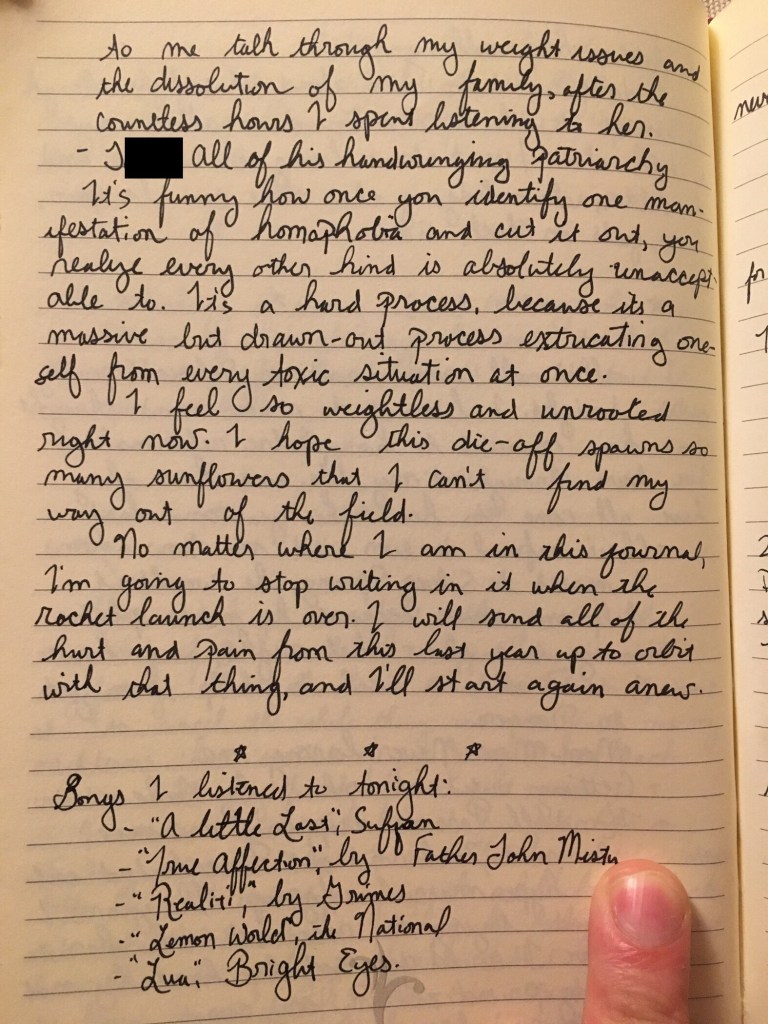 to me talk through my weight issues and
the dissolution of my family, after the
countless hours I spent listening to her.
- J All of his handwringing patriarchy
It's funny how once you identify one man-
ifestation of homophobia and cut it out, you
realize every other kind is absolutely unaccept-
able to. It's a hard process, because its a
massive but drawn-out process extricating one-
self from every toxic situation at once.
I feel so weightless and unrooted
right now. I hope this die-off spawns so
many sunflowers that I can't find my
way out of the field.
No matter where I am in this journal,
I'm going to stop writing in it when the
rocket launch is over. I will send all of the
hurt and pain from this last year up to orbit
with that thing, and I'll start again anew.
Songs I listened to tonight:
- "A little Lost", Sufjan
- "True Affection", by Father John Misty
- "Realiti," by Grimes
- "Lemon World", the National
- "Lua", Bright Eyes.